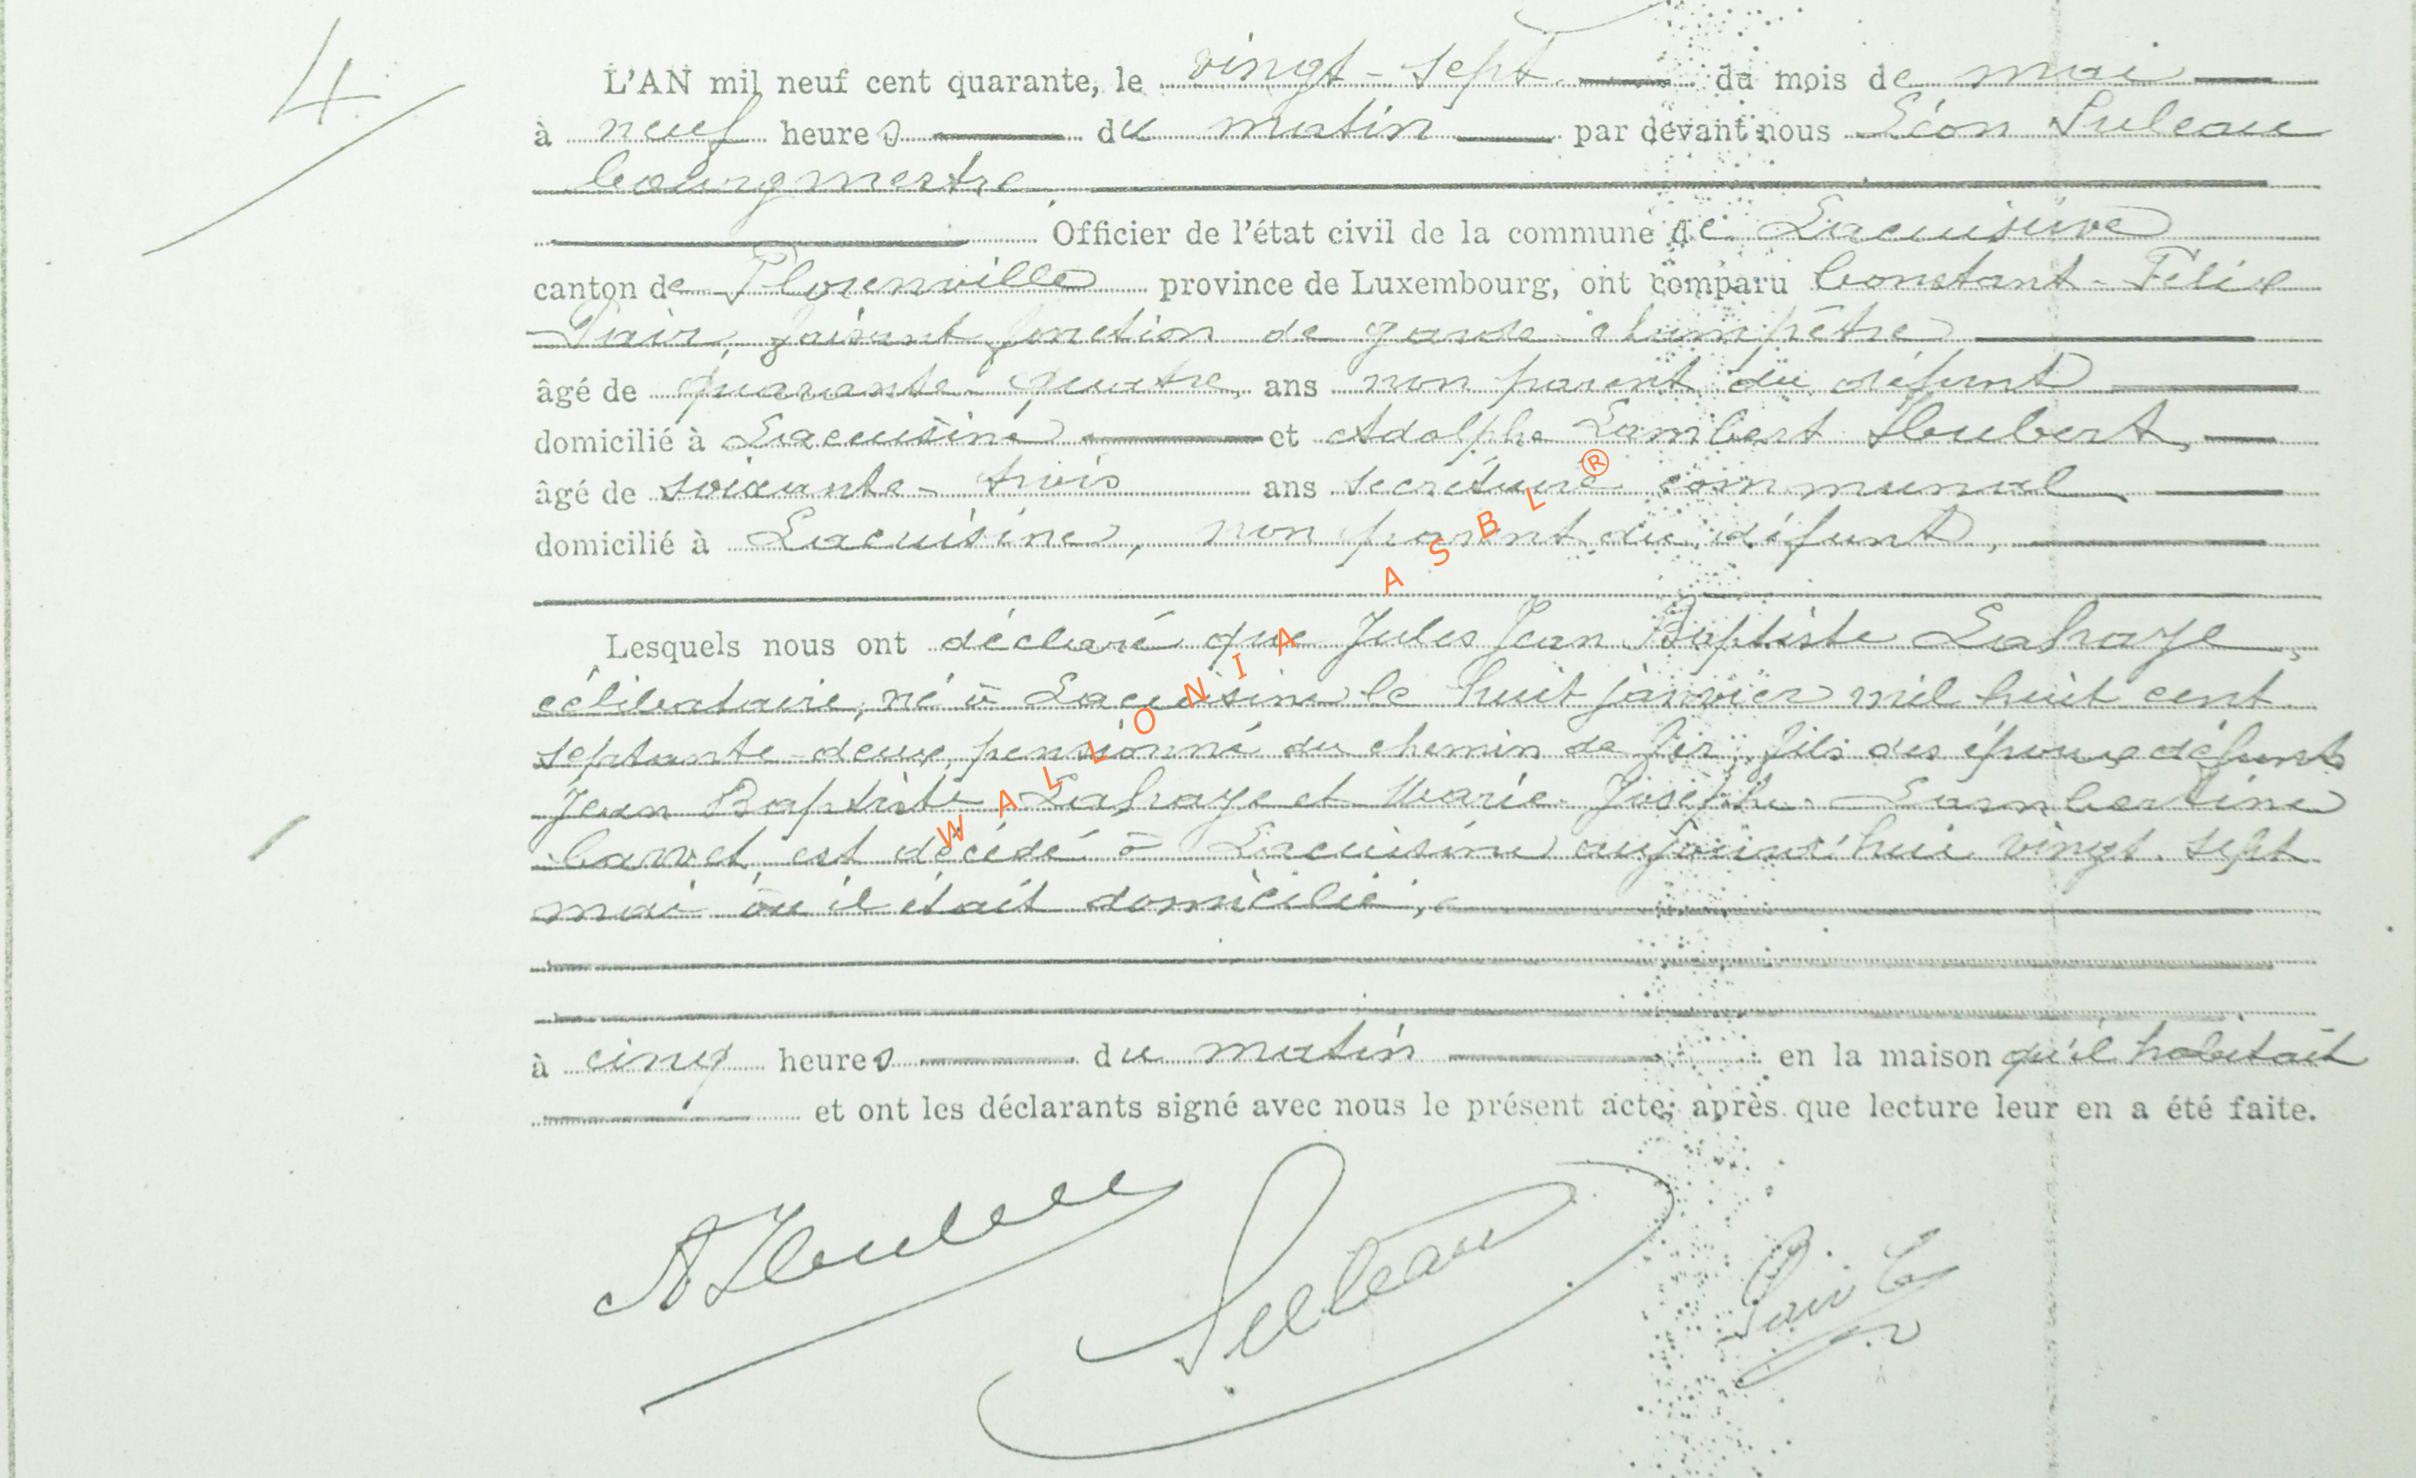 4.
L'AN mil neuf cent quarante, le vingt-sept du mois de mai
à neuf heures du matin par devant nous Léon Suleau
bourgmestre
Officier de l'état civil de la commune de Lacuisine
canton de Florenville province de Luxembourg, ont comparu Constant-Félix
faisant fonction de garde champêtre
âgé de quarante-quatre ans non parent du défunt
domicilié à Lacuisine et Adolphe Lambert Houbert,
âgé de soixante-trois ans secrétaire communal
domicilié à Lacuisine, non parent du défunt,
Lesquels nous ont déclaré que Jules Jean Baptiste Lahaye,
célibataire, né à Lacuisine le huit janvier mil huit cent
septante-deux, pensionné du chemin de fer, fils des époux défunts
Jean Baptiste Lahaye et Marie-Josèphe-Lambertine
est décédé à Lacuisine aujourd'hui vingt-sept
mai où il était domicilié,
à cinq heures du matin en la maison qu'il habitait
et ont les déclarants signé avec nous le présent acte, après que lecture leur en a été faite.
Suleau
WALLONIA ASBL ®